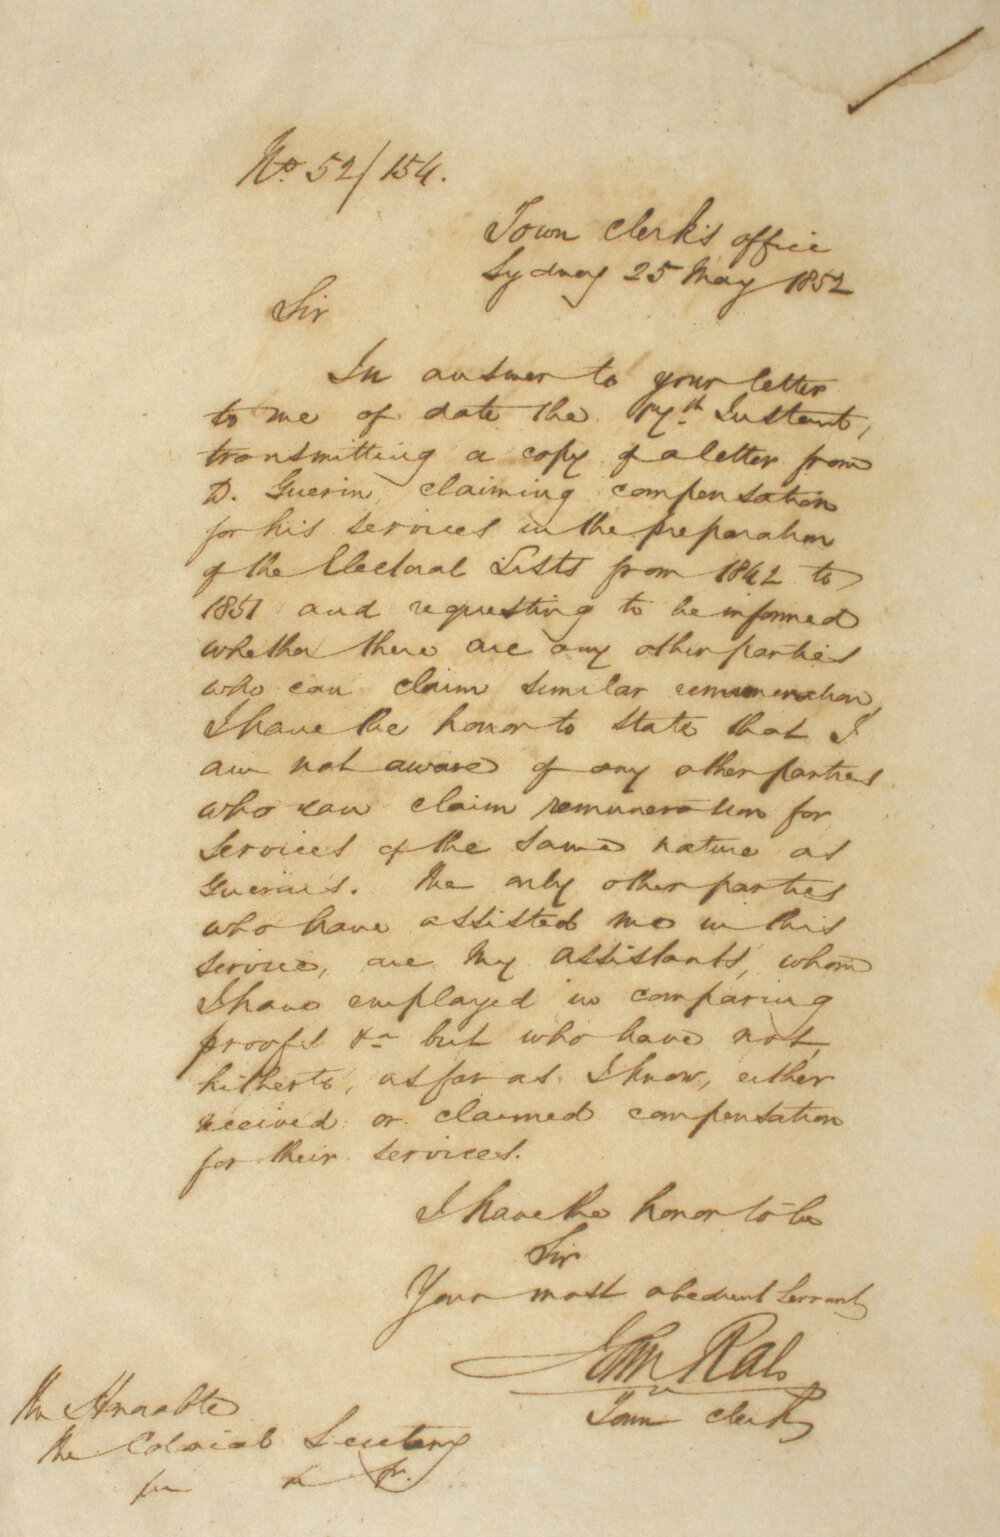 No. 52/154.
Town Clerk's office
Sydney 25 May 1852
Sir
In answer to your letter
to me of date the 17th Instant,
transmitting a copy of a letter from
D. Guerin, claiming compensation
for his services in the preparation
of the Electoral Lists from 1842 to
1851 and requesting to be informed
whether there are any other parties
who can claim similar remuneration,
I have the honor to state that I
am not aware of any other parties
who can claim remuneration for
services of the same nature as
Guerin's. The only other parties
who have assisted me in this
service, are my assistants, whom
I have employed in comparing
proofs &c but who have not,
hitherto, as far as I know, either
received or claimed compensation
for their services.
I have the honor to be
Sir
Your most obedient Servant
John Rae
Town Clerk
The Honorable
The Colonial Secretary